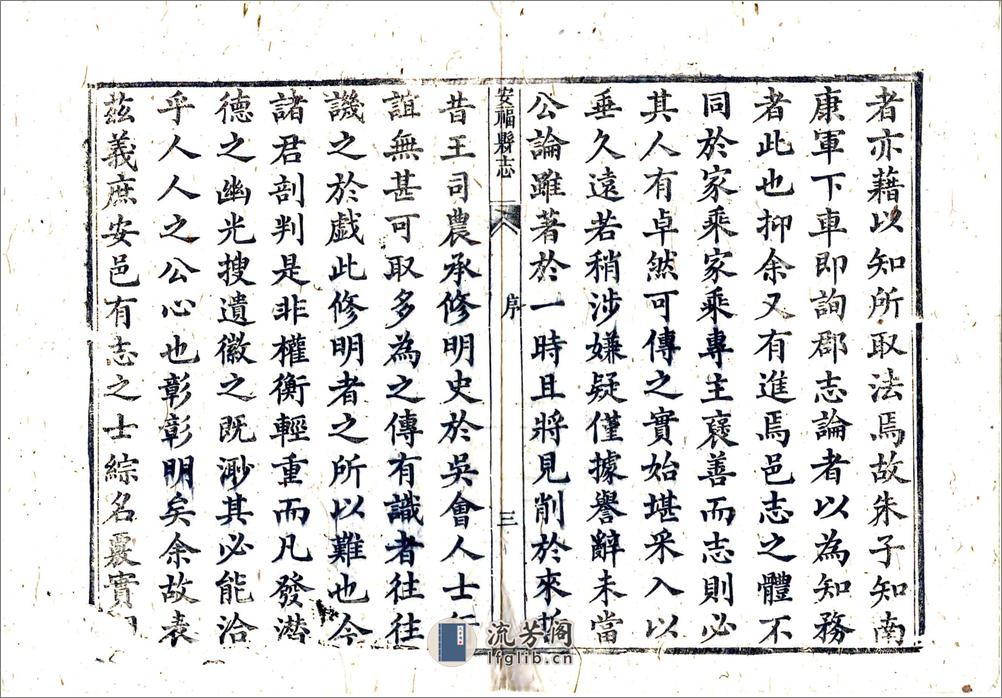 者亦藉以知所取法焉故朱子知南
康軍下車即詢郡志論者以為知務
者此也抑余又有進焉邑志之體不
同於家乘家乘專主褒善而志則必
其人有卓然可傳之實始堪采入以
垂久遠若稍涉嫌疑僅據譽辭未當
公論雖著於一時且將見削於來
安福縣志
序
三
昔王司農承修明史於吳會人士
誼無甚可取多為之傳有識者往往
譏之於戲此修明者之所以難也今
諸君剖判是非權衡輕重而凡發潜
德之幽光搜遺徽之既渺其必能洽
乎人人之公心也彰彰明矣余故表
茲義庶安邑有志之士綜名覈實
流芳阁
lfglib.cn